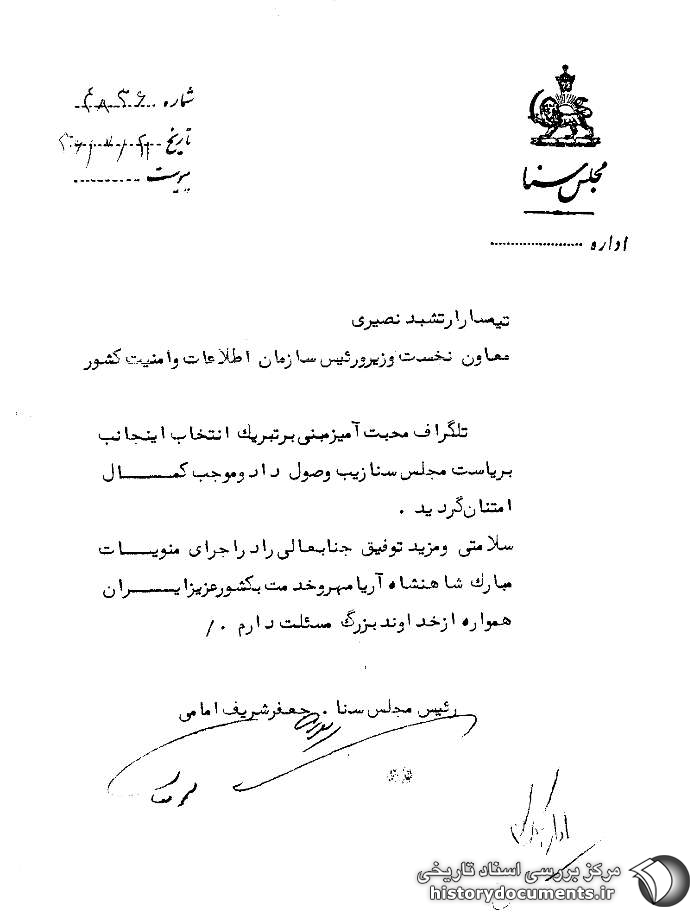 مجلس سنا
شماره
تاریخ
پیوست
اداره
تیمسار ارتشبد نصیری
معاون نخست وزیر و رئیس سازمان اطلاعات و امنیت کشور
تلگراف محبت آمیز مبنی بر تبریک انتخاب اینجانب
بریاست مجلس سنا زیب وصول داد و موجب کمال
امتنان گردید .
سلامتی و مزید توفیق جنابعالی را در اجرای منویات
مبارک شاهنشاه آریامهر و خدمت بکشور عزیز ایران
همواره از خداوند بزرگ مسئلت دارم ٠/
رئیس مجلس سنا . جعفر شریف امامی
مرکز بررسی اسناد تاریخی
historydocuments.ir